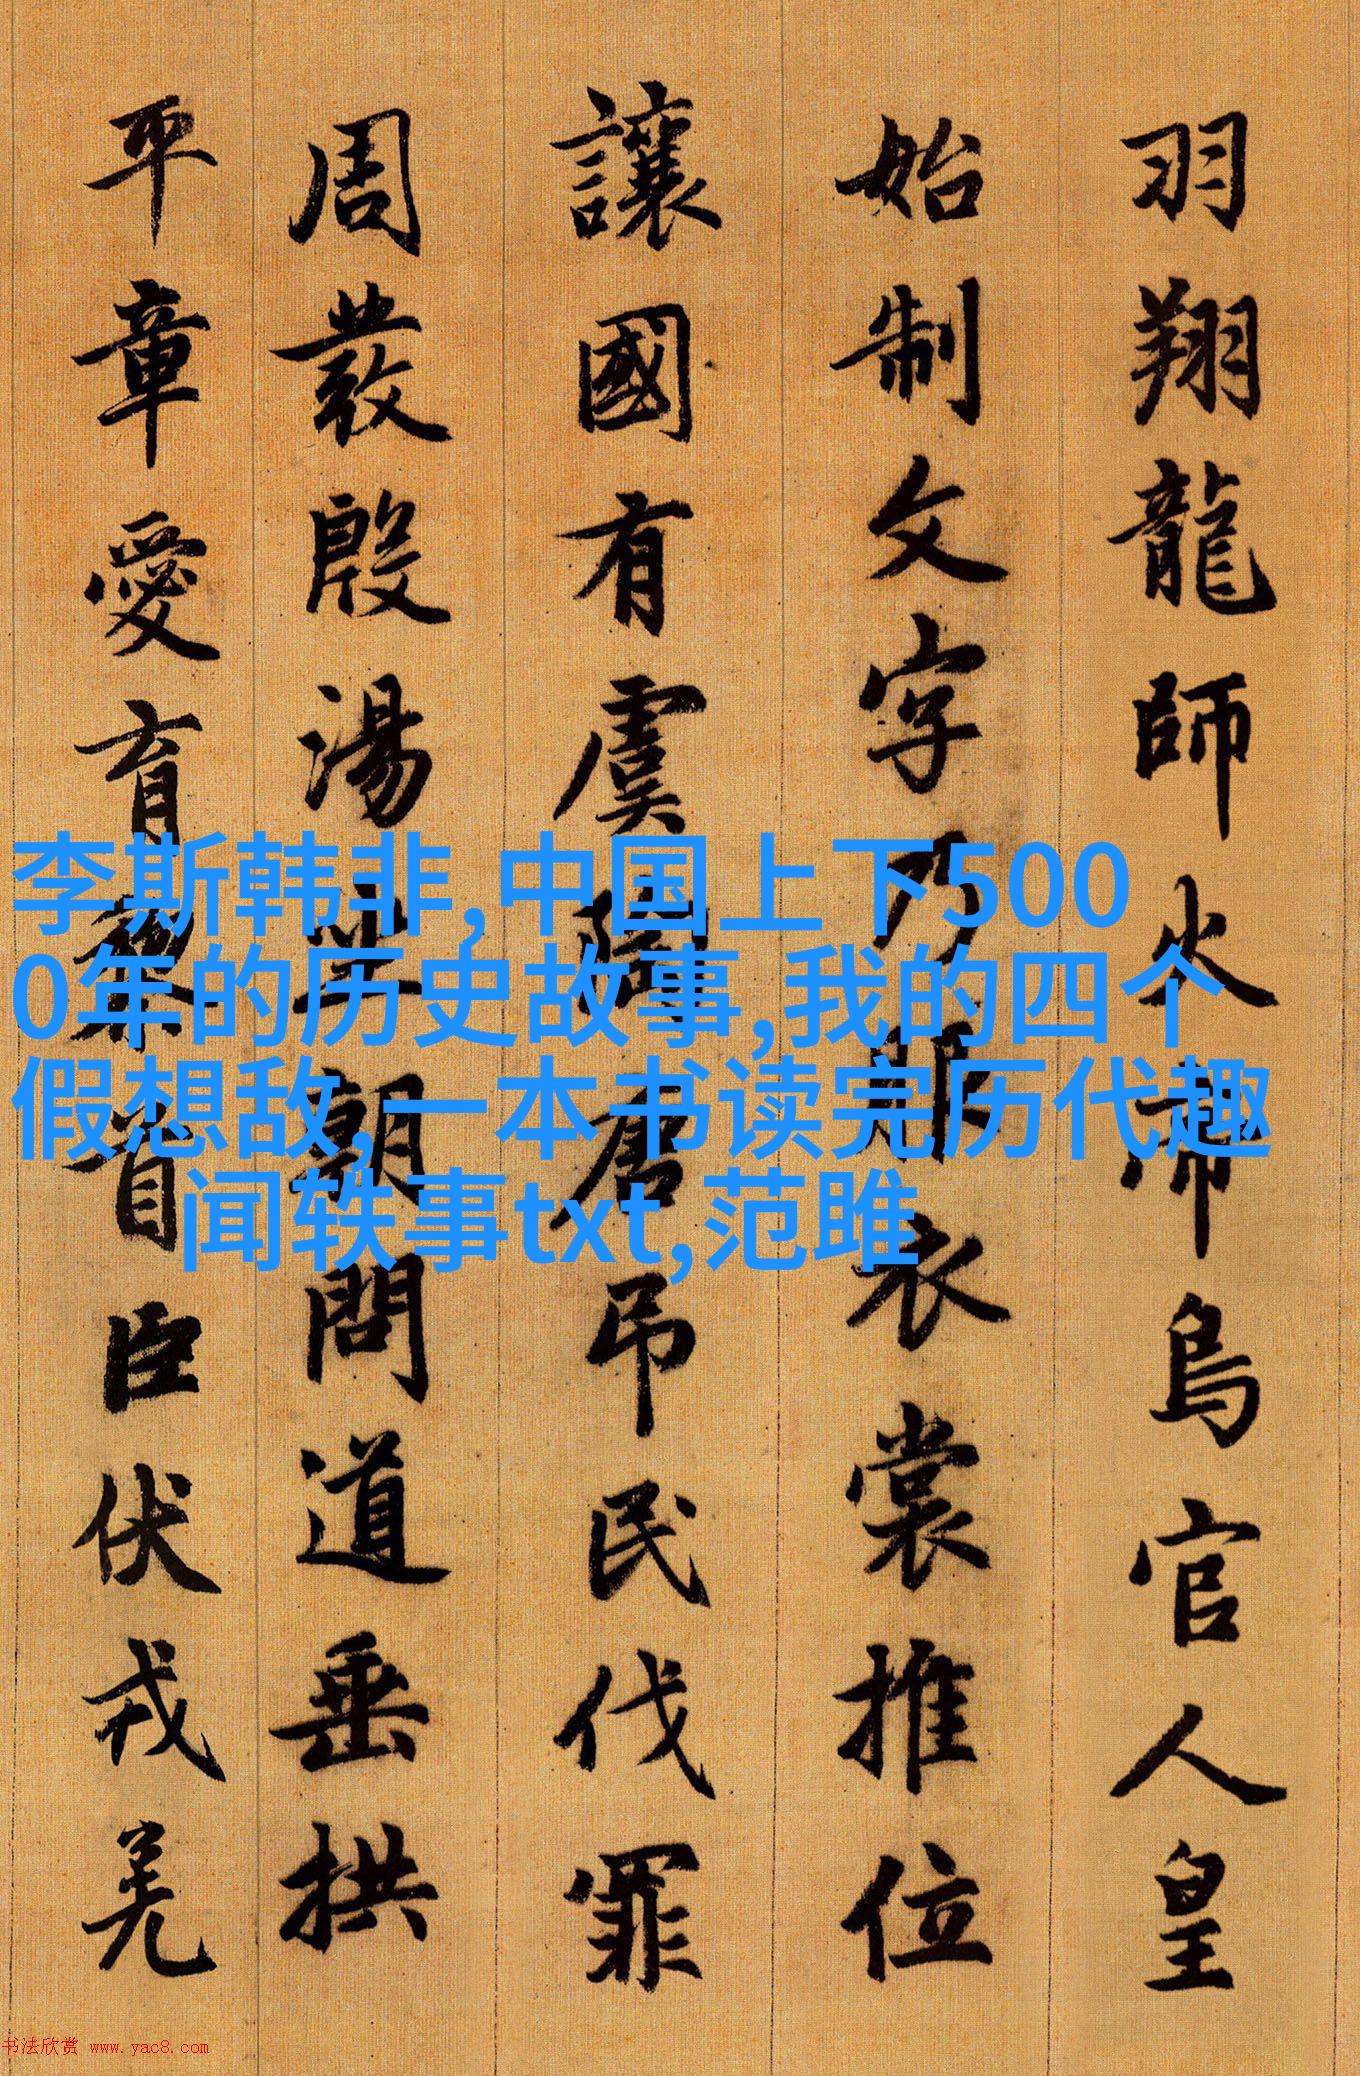 羽翔龍師火帝鳥官人皇
始制文字乃服衣裳推位
讓國有虞陶唐吊民伐罪
周發殷湯坐朝問道垂拱
平章愛育黎首臣伏戎羌
李斯韩非,中国上下500
0年的历史故事,我的四个
假想敌,一本书读完历代趣
闻轶事txt,范雎
书法欣赏 www.yac8.com